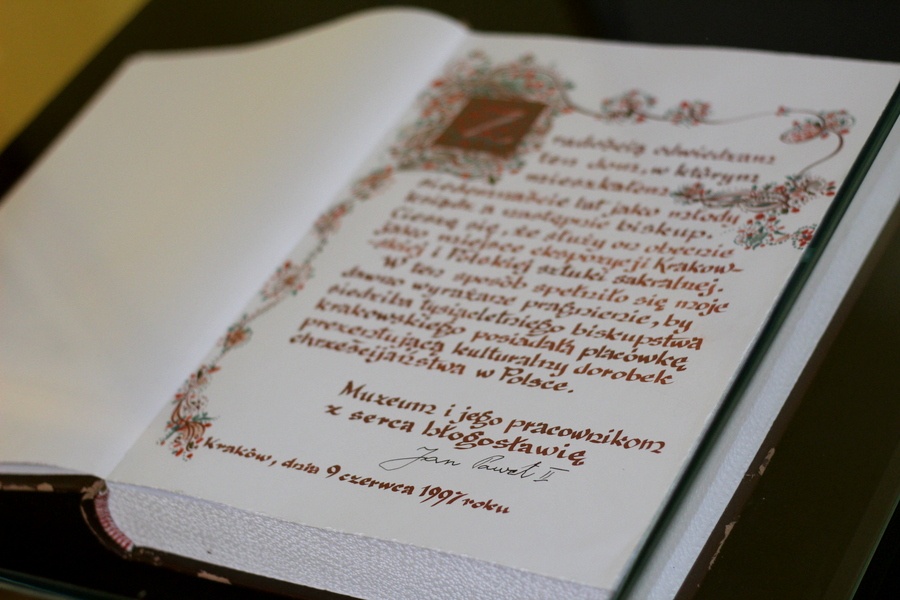 Z radością odwiedzam
ten dom, w którym
mieszkałem
siedemnaście lat jako młody
ksiądz a następnie biskup.
Cieszę się, że służy on obecnie
jako miejsce ekspozycji Krakow-
skiej i Polskiej sztuki sakralnej.
W ten sposób spełniło się moje
dawne wyrażane pragnienie, by
siedziba tysiącletniego biskupstwa
krakowskiego posiadała placówkę
prezentującą kulturalny dorobek
chrześcijaństwa w Polsce.
Muzeum i jego pracownikom
z serca błogosławię
Jan Paweł II
Kraków, dnia 9 czerwca 1997 roku